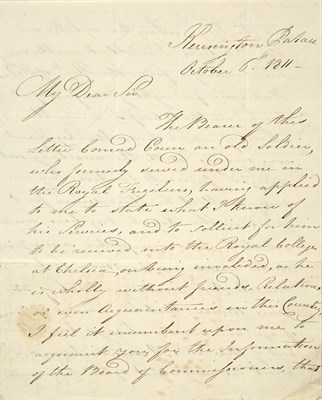 Kensington Palace
October 6. 1811-
My Dear Sir
The Bearer of this
Letter Conrad Coun an old Soldier,
who formerly served under me in
the Royal Fuzileers, having applied
to me to state what I know of
his Services, and to sollicit for him
to be received into the Royal College
at Chelsea, on being invalided, as he
is wholly without friends, Relations,
or even Acquaintances in this Country,
I feel it incumbent upon me to
acquaint you, for the Information
of the Board of Commissioners, that